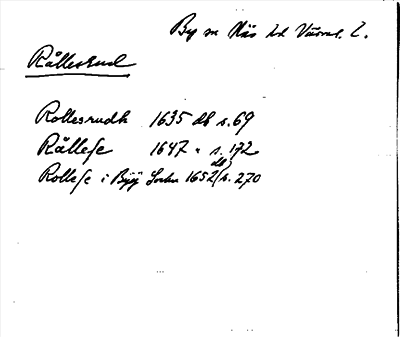 By sn Näs hd Värml. L.
Rålleserud
Rollesrudh 1635 db s. 69
Rållese 1647 " s. 172
Rollese i Byy Sochn 1652 (db s. 270